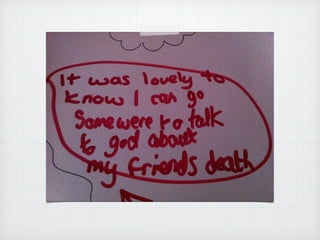 It was lovely to
know I can go
somewere to talk
to god about
my friends death